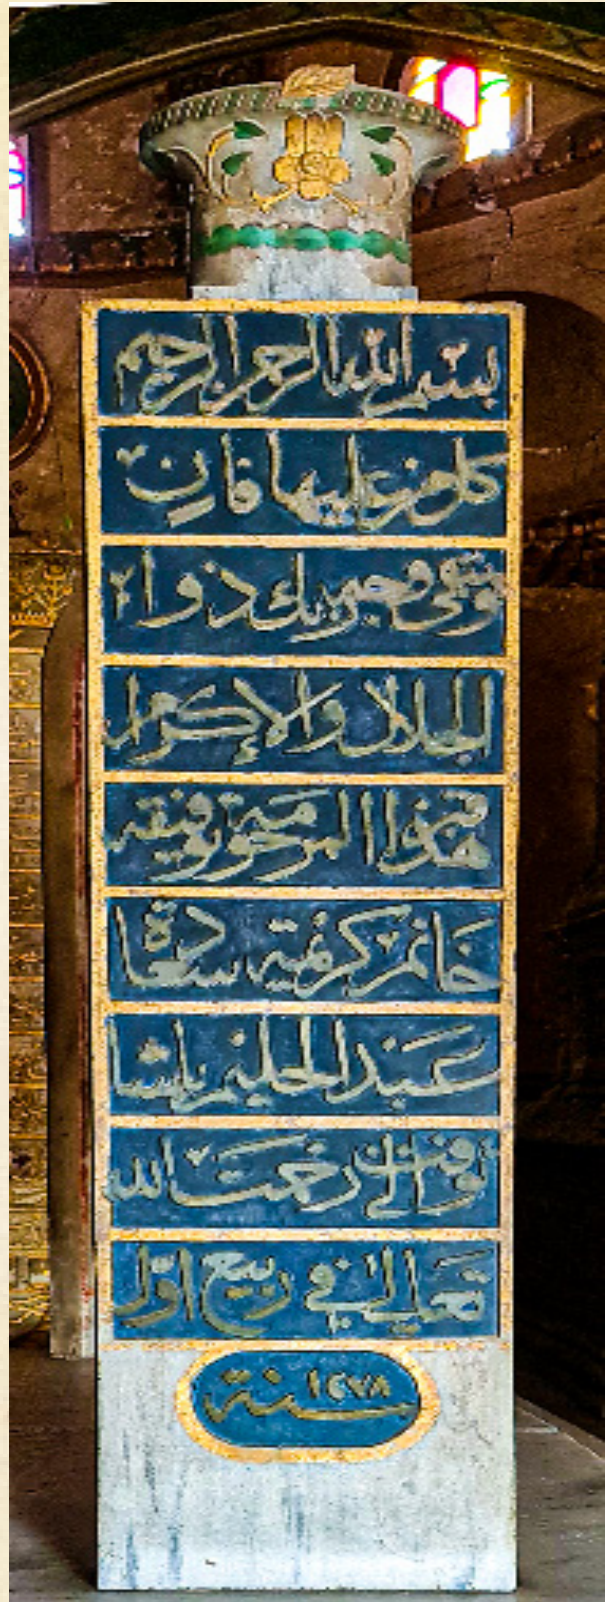 بسم الله الرحمن الرحيم
كل من عليها فان
ويبقى وجه ربك ذوا
الجلال والإكرام
هذا المرحومة توفيقه
خانم كريمة سعادة
عبد الحليم باشا
توفت الى رحمت الله
تعالى في ربيع اول
سنة ١٢٧٨